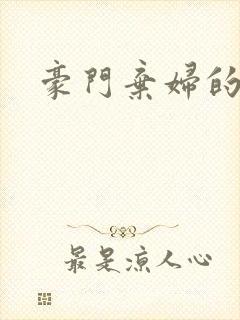 豪門棄婦的
最是涼人心